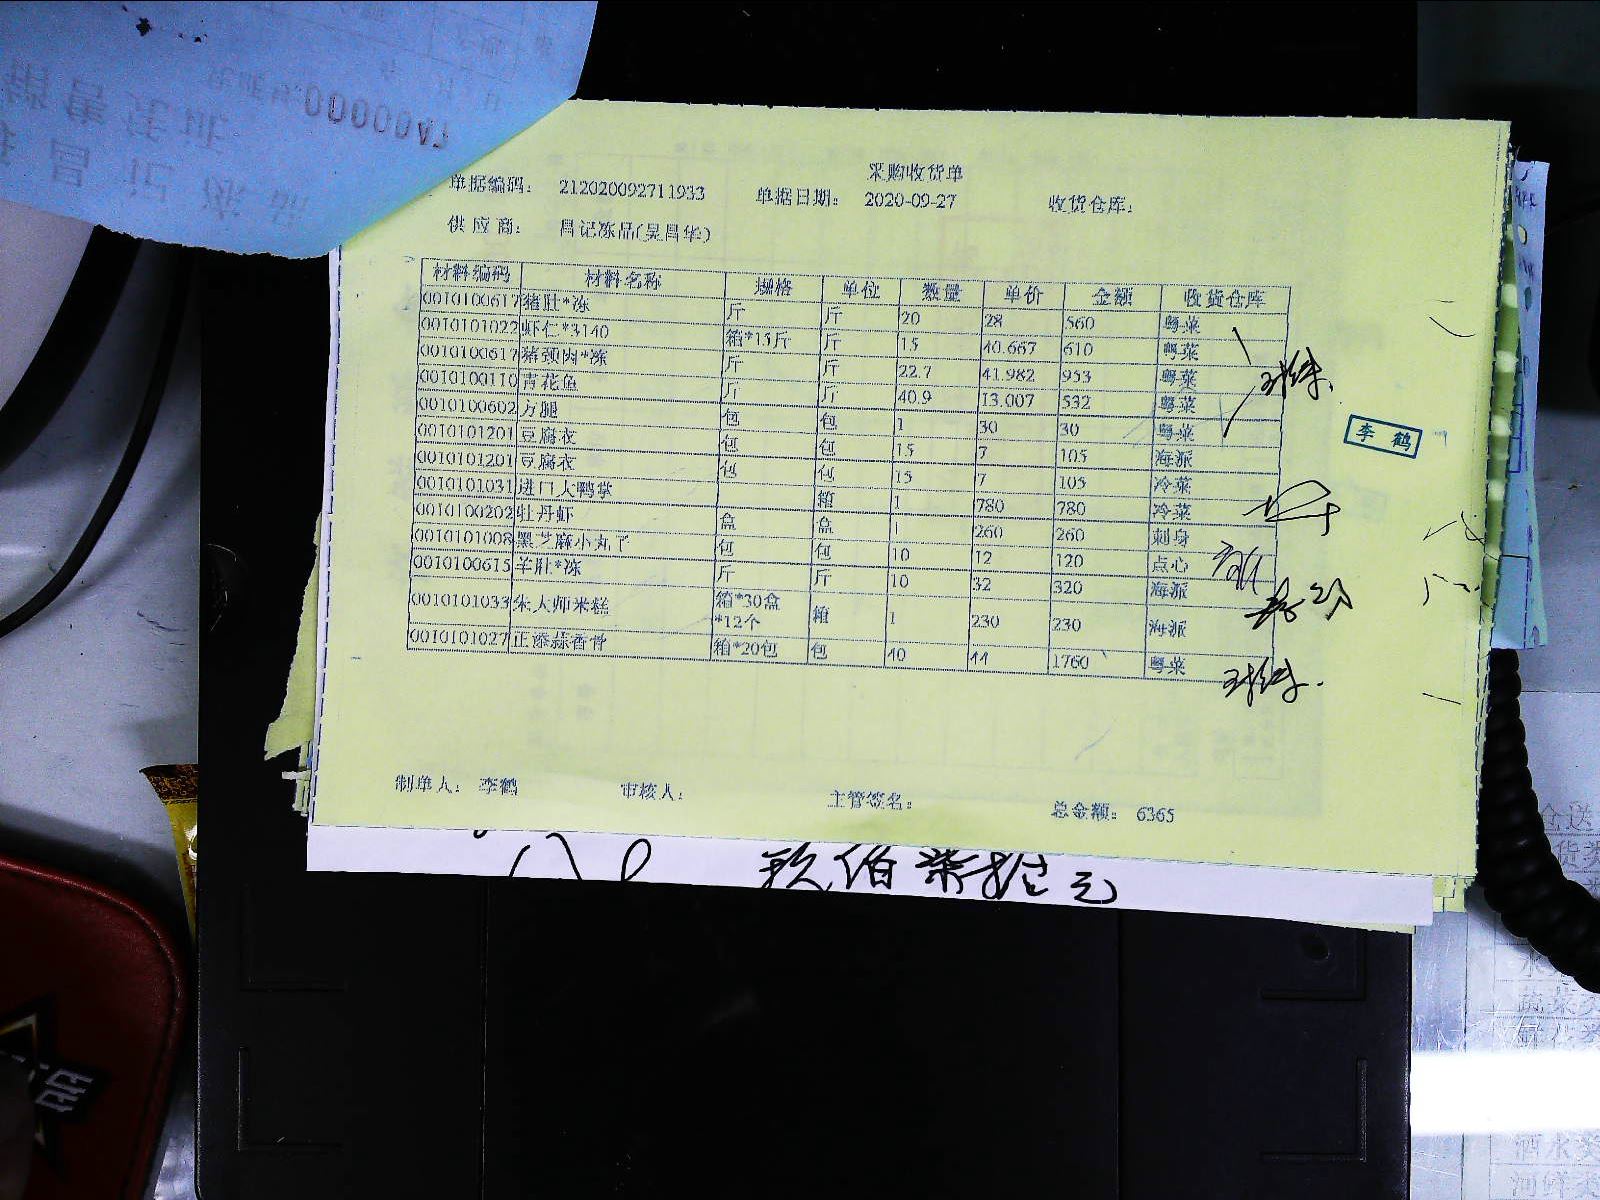 采购收货单
单据编码： 212020092711933 单据日期： 2020-09-27 收货仓库：
供应商： 昌记冻品(吴昌华)
材料编码 材料名称 规格 单位 数量 单价 金额 收货仓库
0010100617 猪肚*冻 斤 斤 20 28 560 粤菜
0010101022 虾仁*3140 箱*15斤 斤 15 40.667 610 粤菜
0010100617 猪颈肉*冻 斤 斤 22.7 41.982 953 粤菜
0010100110 青花鱼 斤 斤 40.9 13.007 532 粤菜
0010100602 方腿 包 包 1 30 30 粤菜
0010101201 豆腐衣 包 包 15 7 105 海派
0010101201 豆腐衣 包 包 15 7 105 冷菜
0010101031 进口大鸭掌 箱 1 780 780 冷菜
0010100202 牡丹虾 盒 盒 1 260 260 刺身
0010101008 黑芝麻小丸子 包 包 10 12 120 点心
0010100615 羊肚*冻 斤 斤 10 32 320 海派
0010101033 朱大师米糕 箱*30盒*12个 箱 1 230 230 海派
0010101027 正添蒜香骨 箱*20包 包 40 44 1760 粤菜
李鹤
制单人： 李鹤 审核人： 主管签名： 总金额： 6365